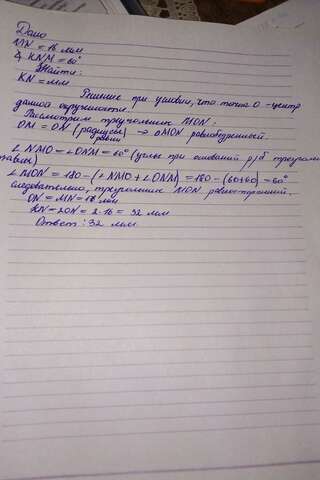 Дано
MN = 16 мм
∠ KNM = 60°
Найти:
KN = мм
Решение при условии, что точка О - центр
данной окружности.
Рассмотрим треугольник MON:
OM = ON (радиусы) → ΔMON равнобедренный.
равны
∠ NMO = ∠ONM = 60° (углы при основании р/б треуголь
∠ MON = 180 - (∠NMO + ∠ONM) = 180 - (60+60) = 60°
Следовательно, треугольник MON равносторонний.
ON = MN = 16 мм
KN = 2ON = 2·16 = 32 мм
Ответ: 32 мм